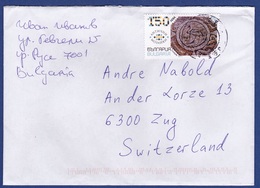 Иван Иванов
ул.
гр. Русе 7001
Bulgaria
1.50
БЪЛГАРИЯ
Andre Nabold
An der Lorze 13
6300 Zug
Switzerland